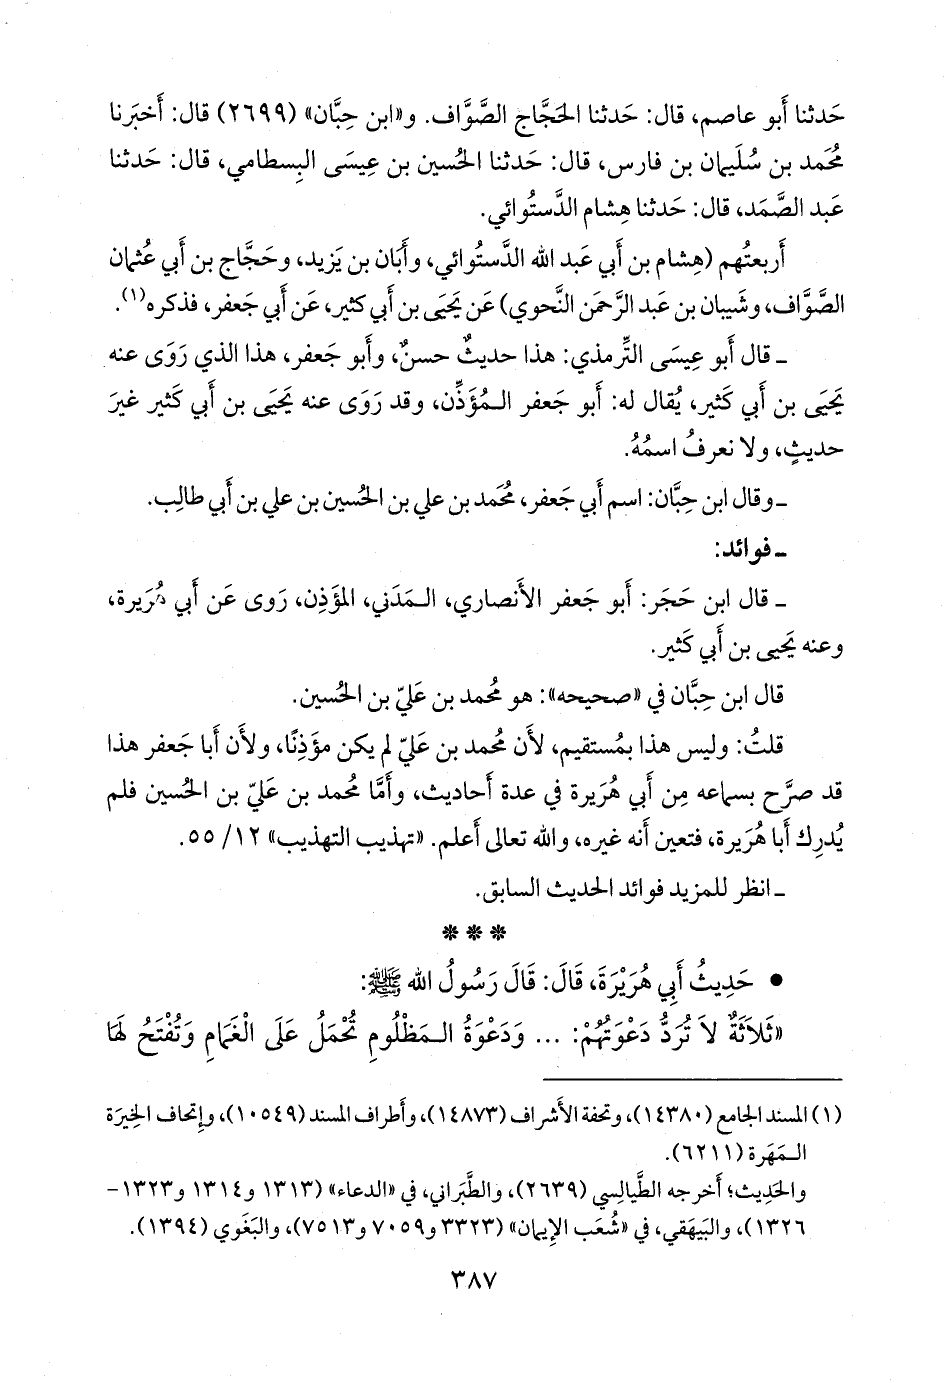 حَدثنا أَبو عاصم، قال: حَدثنا الحَجَّاج الصَّوَّاف. و«ابن حِبَّان» (٢٦٩٩) قال: أَخبَرنا
مُحمد بن سُلَيمان بن فارس، قال: حَدثنا الحُسين بن عِيسَى البِسطامي، قال: حَدثنا
عَبد الصَّمَد، قال: حَدثنا هِشام الدَّستُوائي.
أَربعتُهم (هِشام بن أَبي عَبد الله الدَّستُوائي، وأَبَان بن يَزيد، وحَجَّاج بن أَبي عُثمان
الصَّوَّاف، وشَيبان بن عَبد الرَّحمَن النَّحوي) عَن يَحيَى بن أَبي كثير، عَن أَبي جَعفر، فذكره(١).
ـ قال أَبو عِيسَى التِّرمذي: هذا حديثٌ حسنٌ، وأَبو جَعفر، هذا الذي رَوَى عنه
يَحيَى بن أَبي كَثير، يُقال له: أَبو جَعفر الـمُؤَذِّن، وقد رَوَى عنه يَحيَى بن أَبي كَثير غيرَ
حديثٍ، ولا نعرفُ اسمُهُ.
ـ وقال ابن حِبَّان: اسم أَبي جَعفر، مُحمد بن علي بن الحُسين بن علي بن أَبي طالِب.
ـ فوائد:
ـ قال ابن حَجَر: أَبو جَعفر الأَنصاري، الـمَدَني، المؤَذِن، رَوى عَن أَبي هُرَيرة،
وعنه يَحيى بن أَبي كَثير.
قال ابن حِبَّان في «صحيحه»: هو مُحمد بن عَليّ بن الحُسين.
قلتُ: وليس هذا بمُستقيم، لأَن مُحمد بن عَليّ لم يكن مؤَذِنًا، ولأَن أَبا جَعفر هذا
قد صرَّح بسماعه مِن أَبي هُرَيرة في عدة أَحاديث، وأَمَّا مُحمد بن عَليّ بن الحُسين فلم
يُدرِك أَبا هُرَيرة، فتعين أَنه غيره، والله تعالى أَعلم. «تهذيب التهذيب» ١٢/ ٥٥.
ـ انظر للمزيد فوائد الحديث السابق.
* * *
• حَدِيثُ أَبِي هُرَيْرَةَ، قَالَ: قَالَ رَسُولُ الله ﷺ:
«ثَلاَثَةٌ لاَ تُرَدُّ دَعْوَتُهُمْ: ... وَدَعْوَةُ الـمَظْلُومِ تُحْمَلُ عَلَى الْغَمَامِ وَتُفْتَحُ لَهَا
(١) المسند الجامع (١٤٣٨٠)، وتحفة الأَشراف (١٤٨٧٣)، وأَطراف المسند (١٠٥٤٩)، وإِتحاف الخِيرَة
الـمَهَرة (٦٢١١).
والحَدِيث؛ أَخرجه الطَّيالِسي (٢٦٣٩)، والطَّبَراني، في «الدعاء» (١٣١٣ و١٣١٤ و١٣٢٣-
١٣٢٦)، والبَيهَقي، في «شُعَب الإِيمان» (٣٣٢٣ و٧٠٥٩ و٧٥١٣)، والبَغَوي (١٣٩٤).
٣٨٧